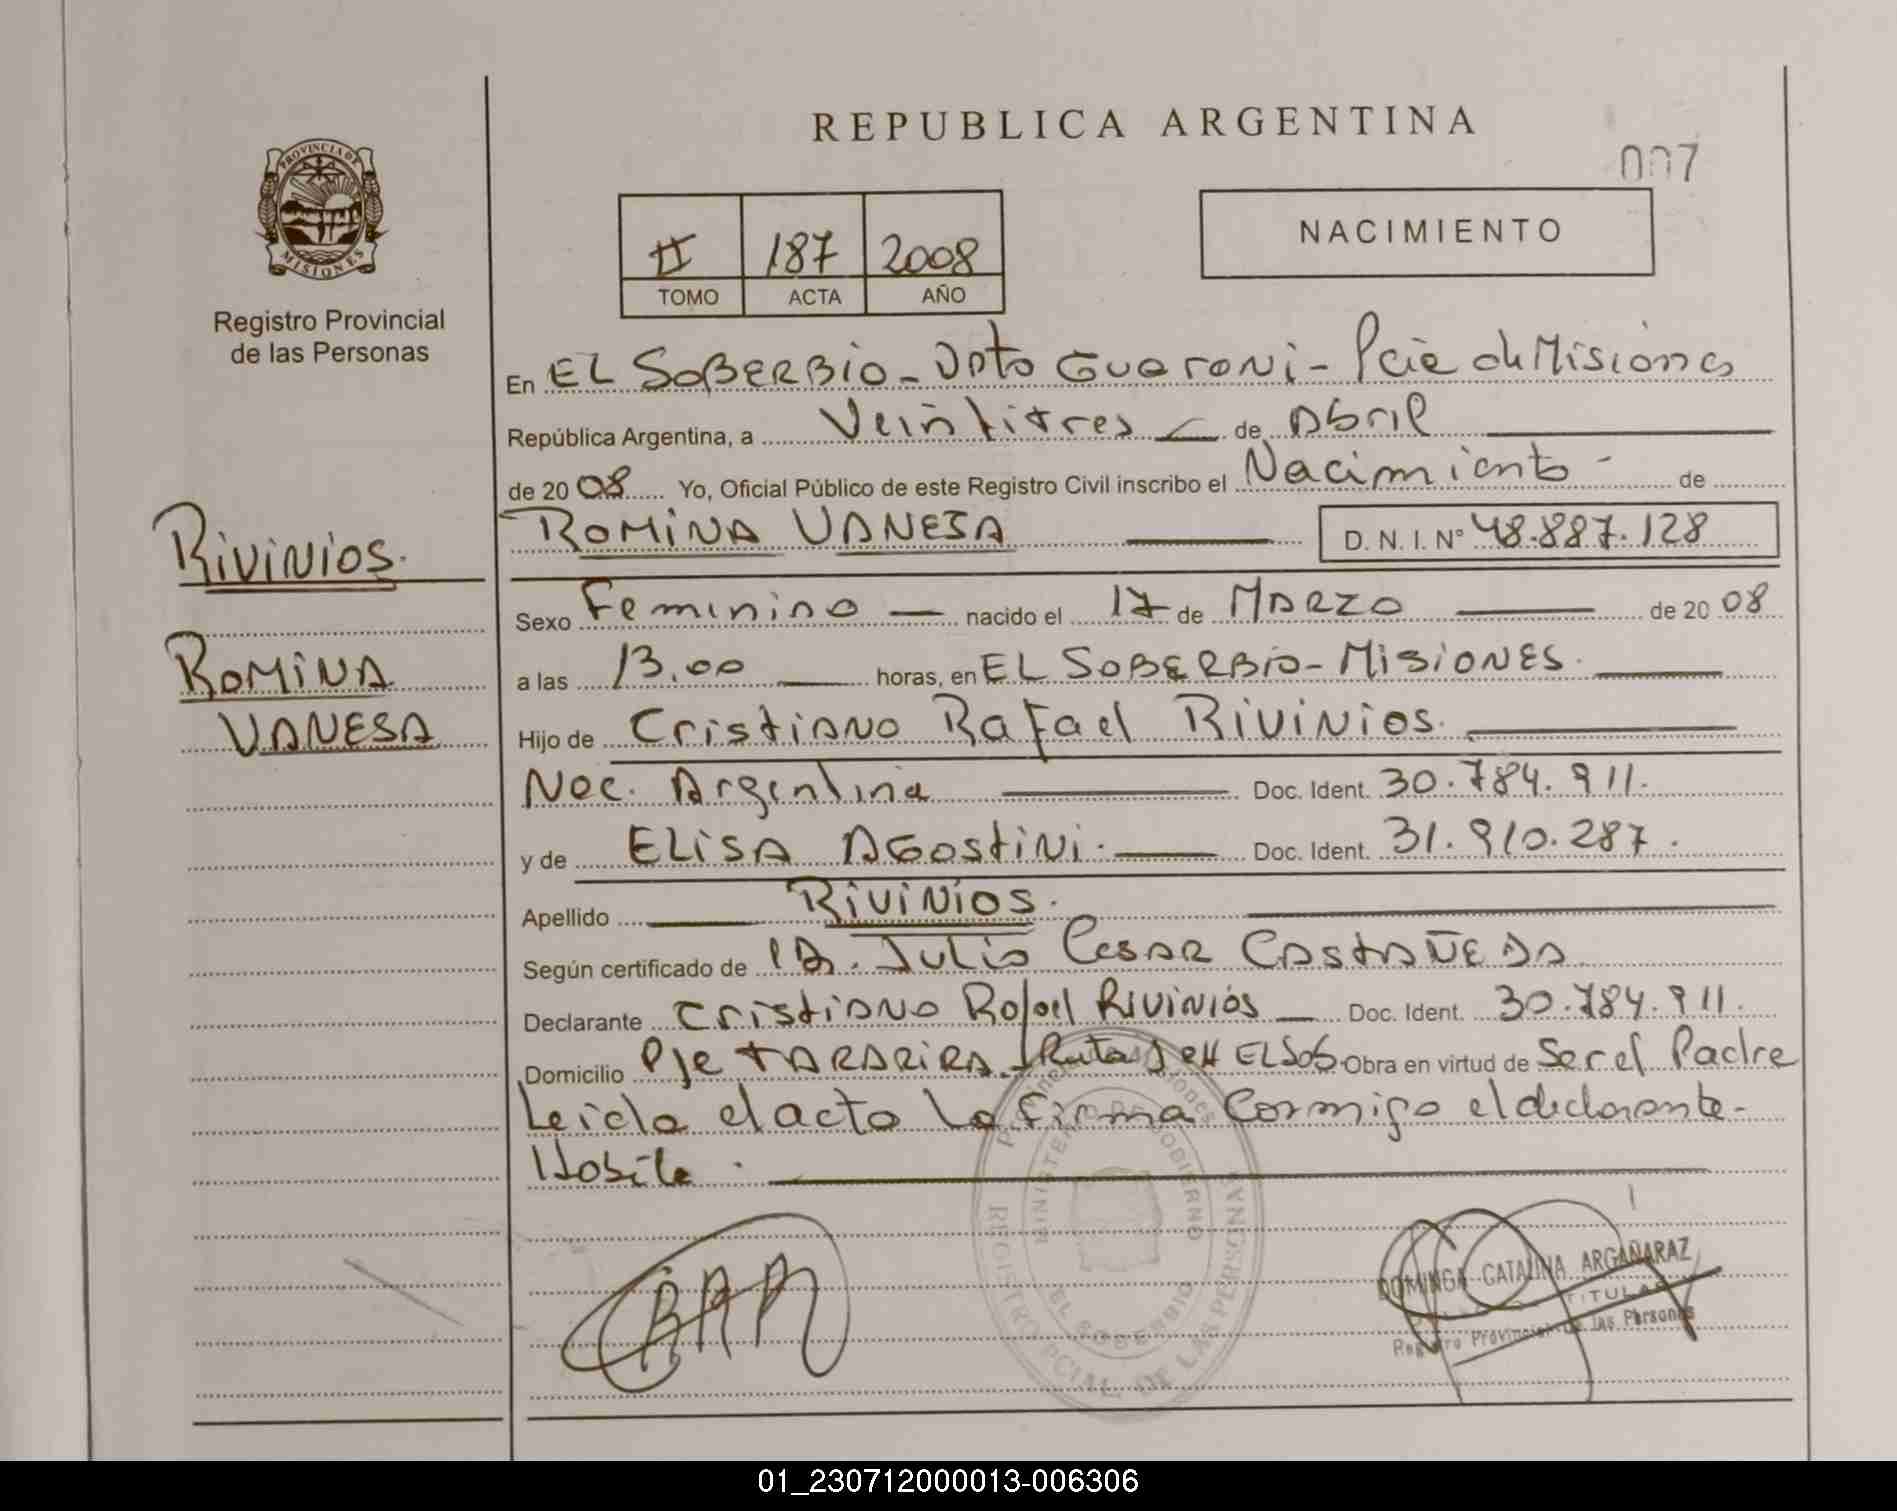 REPUBLICA ARGENTINA
007
PROVINCIA DE
MISIONES
Registro Provincial
de las Personas
II 187 2008
TOMO ACTA AÑO
NACIMIENTO
En EL SOBERBIO - Dpto Guarani - Pcia de Misiones
República Argentina, a Veintitres de Abril
de 2008 Yo, Oficial Público de este Registro Civil inscribo el Nacimiento - de
ROMINA VANESA D. N. I. Nº 48.887.128
Rivinios.
ROMINA
VANESA
Sexo Femenino nacido el 17 de MARZO de 2008
a las 13.00 horas, en EL SOBERBIO - MISIONES.
Hijo de Cristiano Rafael Rivinios.
Nac. Argentina Doc. Ident. 30.784.911.
y de ELISA AGOSTINI. Doc. Ident. 31.910.287.
Apellido RIVINIOS.
Según certificado de Dr. Julio Cesar CASTAÑEDA
Declarante Cristiano Rafael Rivinios Doc. Ident. 30.784.911.
Domicilio Pje TARARIRA - Ruta EL SOB. Obra en virtud de Ser el Padre
Leida el acta la firma conmigo el declarante -
Habile.
Provincia de Misiones
MINISTERIO DE GOBIERNO
EL SOBERBIO
REGISTRO PCIAL. DE LAS PERSONAS
DOMINGA CATALINA ARGAÑARAZ
TITULAR
Registro Provincial de las Personas
01_230712000013-006306